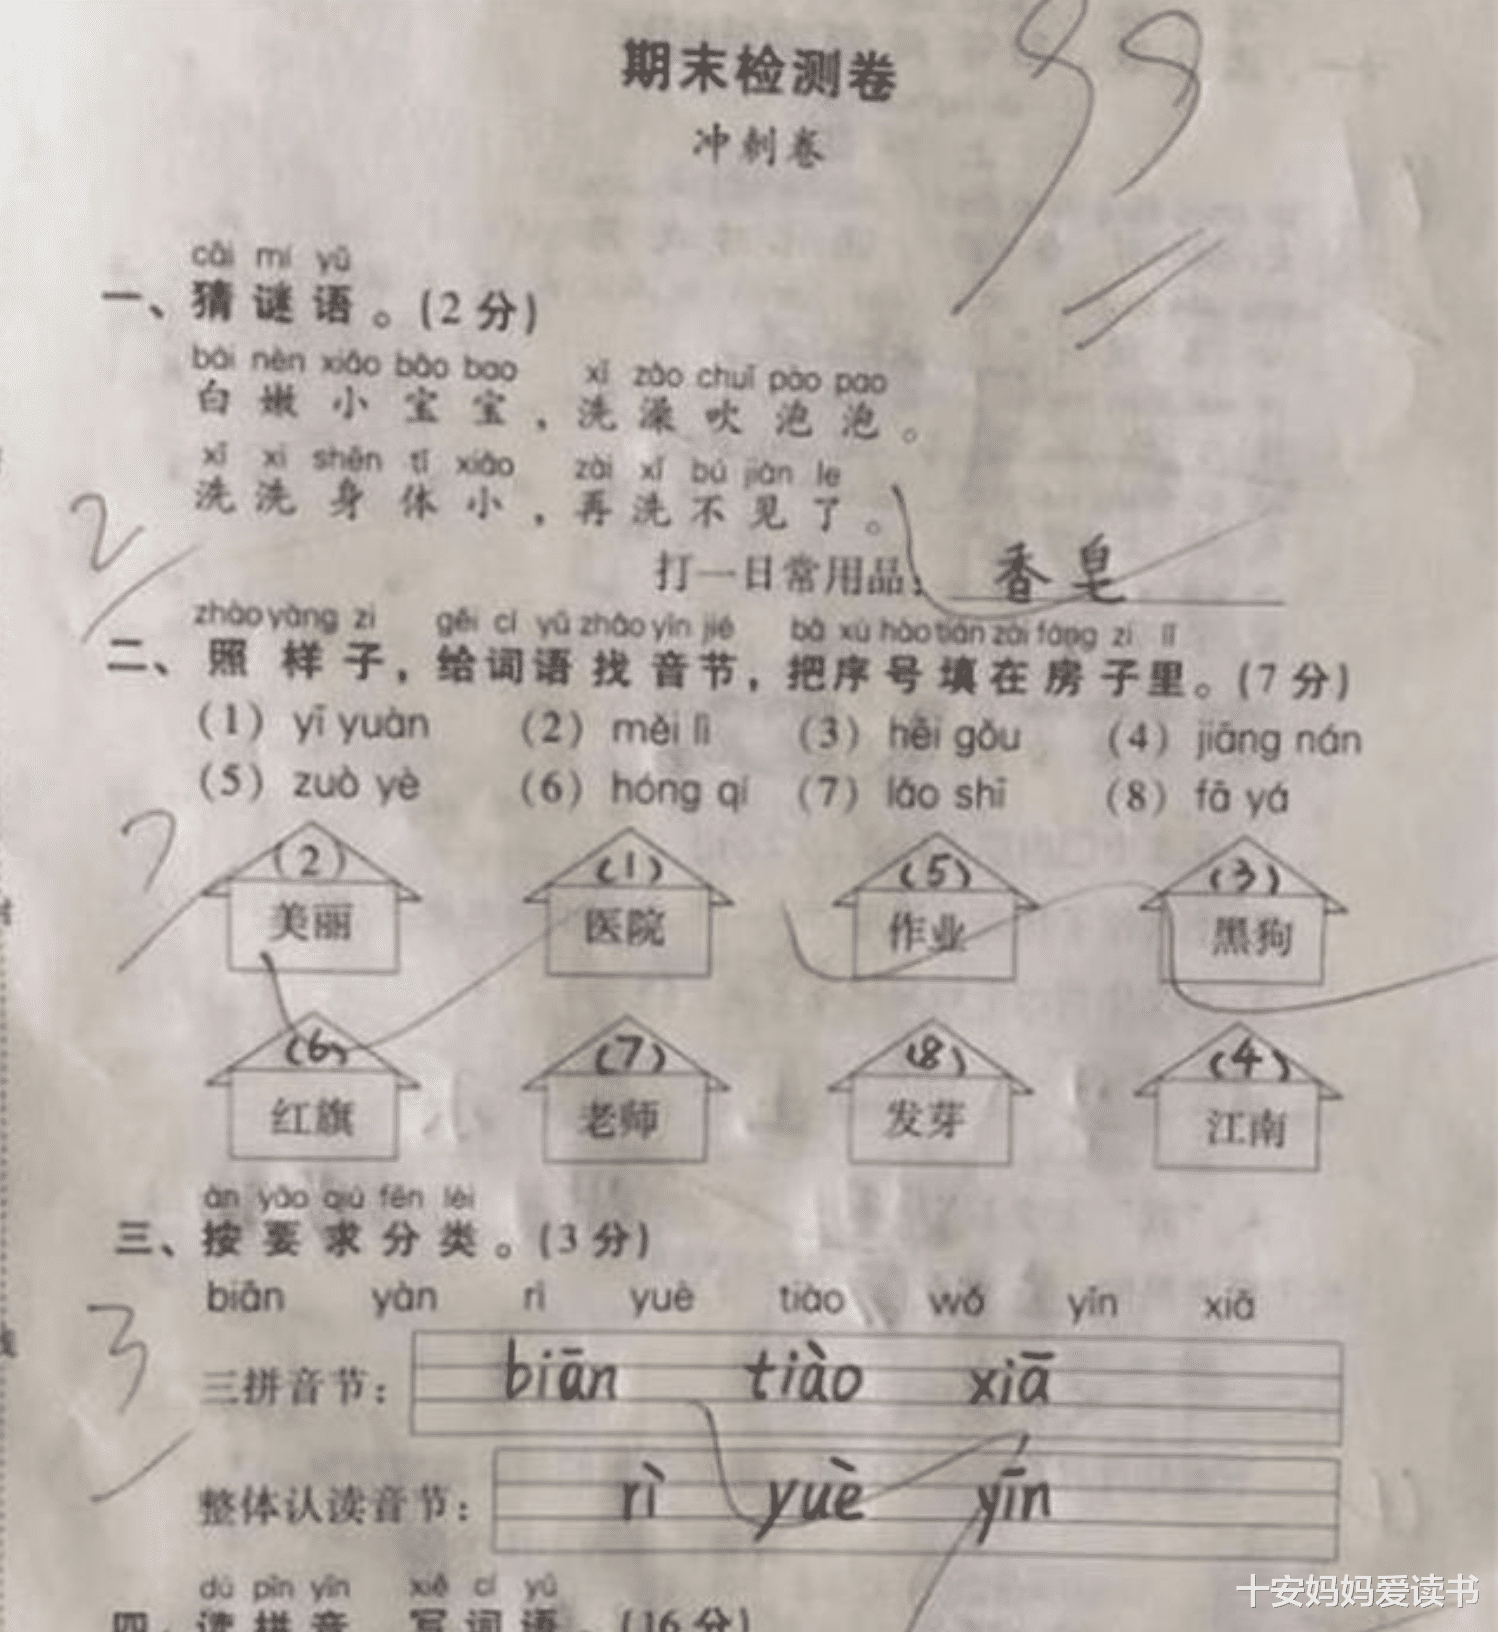 期末检测卷
99
冲刺卷
cāi mí yǔ
一、猜谜语。(2分)
bái nèn xiǎo bǎo bao xǐ zǎo chuī pào pao
白嫩小宝宝，洗澡吹泡泡。
xǐ xi shēn tǐ xiǎo zài xǐ bú jiàn le
洗洗身体小，再洗不见了。
2
打一日常用品：香皂
zhào yàng zi gěi cí yǔ zhǎo yīn jié bǎ xù hào tián zài fáng zi lǐ
二、照样子，给词语找音节，把序号填在房子里。(7分)
(1) yī yuàn (2) měi lì (3) hēi gǒu (4) jiāng nán
(5) zuò yè (6) hóng qí (7) lǎo shī (8) fā yá
7
(2) (1) (5) (3)
美丽 医院 作业 黑狗
(6) (7) (8) (4)
红旗 老师 发芽 江南
àn yāo qiú fēn lèi
三、按要求分类。(3分)
biān yàn rì yuè tiào wǒ yīn xiā
3
三拼音节：biān tiào xiā
整体认读音节：rì yuè yīn
dú pīn yīn xiě cí yǔ
四、读拼音，写词语。(16分)
十安妈妈爱读书